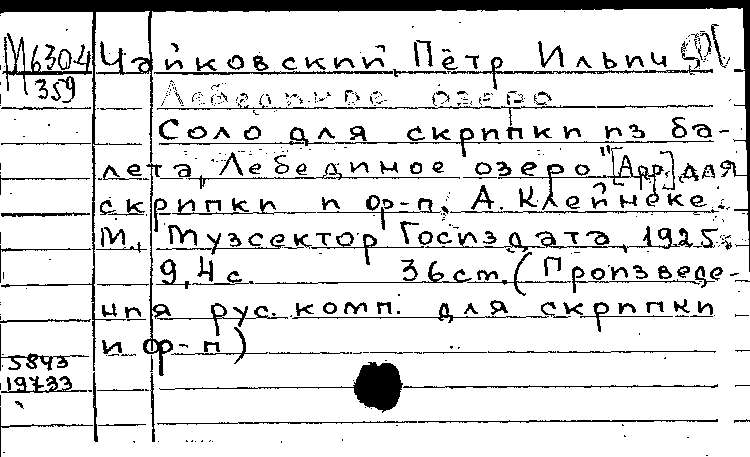 М630-4 Чайковский, Пётр Ильич
359
Лебединое озеро
Соло для скрипки из ба-
лета „Лебединое озеро" [Арр.] для
скрипки и ф-п. А. Клейнеке.
М., Музсектор Госиздата, 1925.
9, 4 с. 36 см. (Произведе-
ния рус. комп. для скрипки
и ф-п)
5843
19733